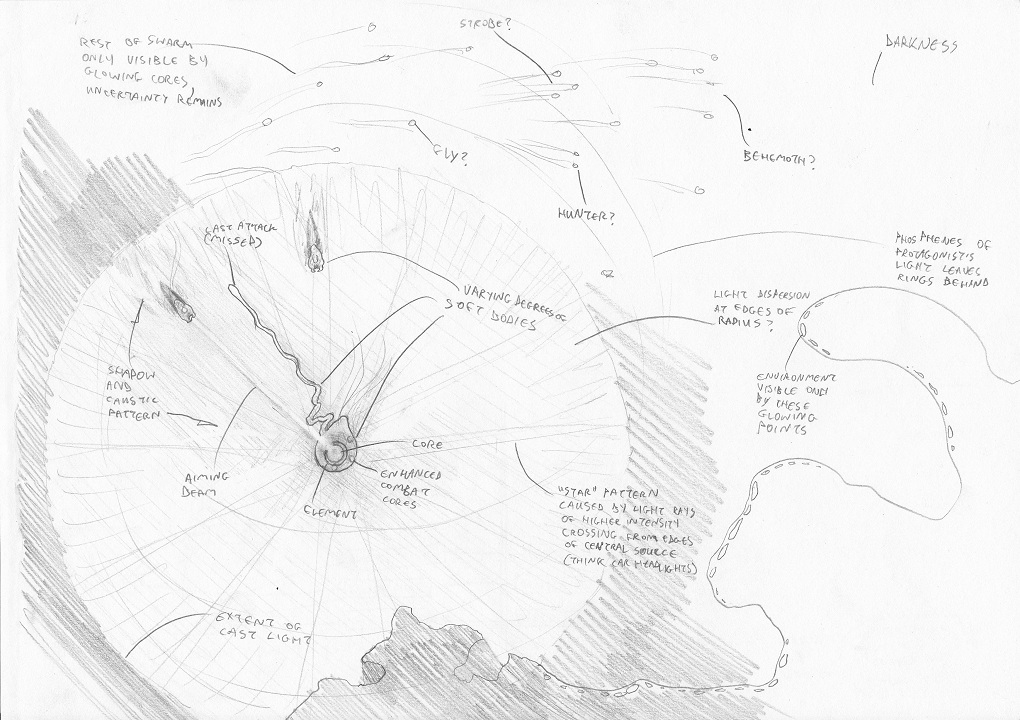 REST OF SWARM
ONLY VISIBLE BY
GLOWING CORES,
UNCERTAINTY REMAINS
STROBE?
DARKNESS
FLY?
BEHEMOTH?
HUNTER?
LAST ATTACK
(MISSED)
PHOSPHENES OF
PROTAGONISTS
LIGHT LEAVES
RINGS BEHIND
VARYING DEGREES OF
SOFT BODIES
LIGHT DISPERSION
AT EDGES OF
RADIUS?
SHADOW
AND
CAUSTIC
PATTERN
ENVIRONMENT
VISIBLE ONLY
BY THESE
GLOWING
POINTS
AIMING
BEAM
CORE
ENHANCED
COMBAT
CORES
CLEMENT
"STAR" PATTERN
CAUSED BY LIGHT RAYS
OF HIGHER INTENSITY
CROSSING FROM EDGES
OF CENTRAL SOURCE
(THINK CAR HEADLIGHTS)
EXTENT OF
CAST LIGHT